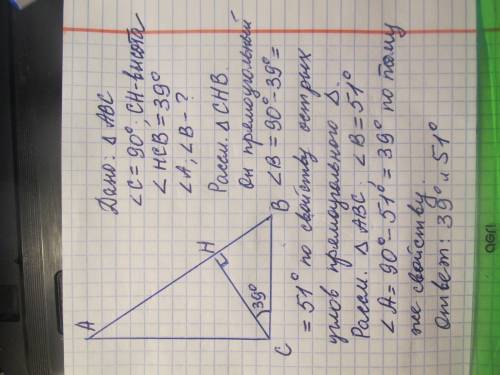 Дано: △ ABC
∠C = 90°, CH-высота
∠HCB = 39°
∠A; ∠B - ?
Рассм. △ CHB.
Он прямоугольный
∠B = 90° - 39° =
= 51° по свойству острых
углов прямоугольного △.
Рассм. △ ABC. ∠B = 51°
∠A = 90° - 51° = 39° по тому
же свойству.
Ответ: 39° и 51°
A
H
B
C
39°